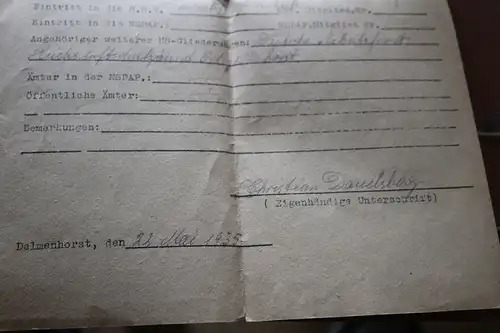 Eintritt in die N.S.
Eintritt in die NSDAP. NSDAP.Mitglied Nr.
Angehöriger weiterer NS-Gliederungen: Deutsche Arbeitsfront
Reichsluftschutzbund
Ämter in der NSDAP.:
Öffentliche Ämter:
Bemerkungen:
Christian Dauelsberg
( Eigenhändige Unterschrift)
Delmenhorst, den 22. Mai 1935